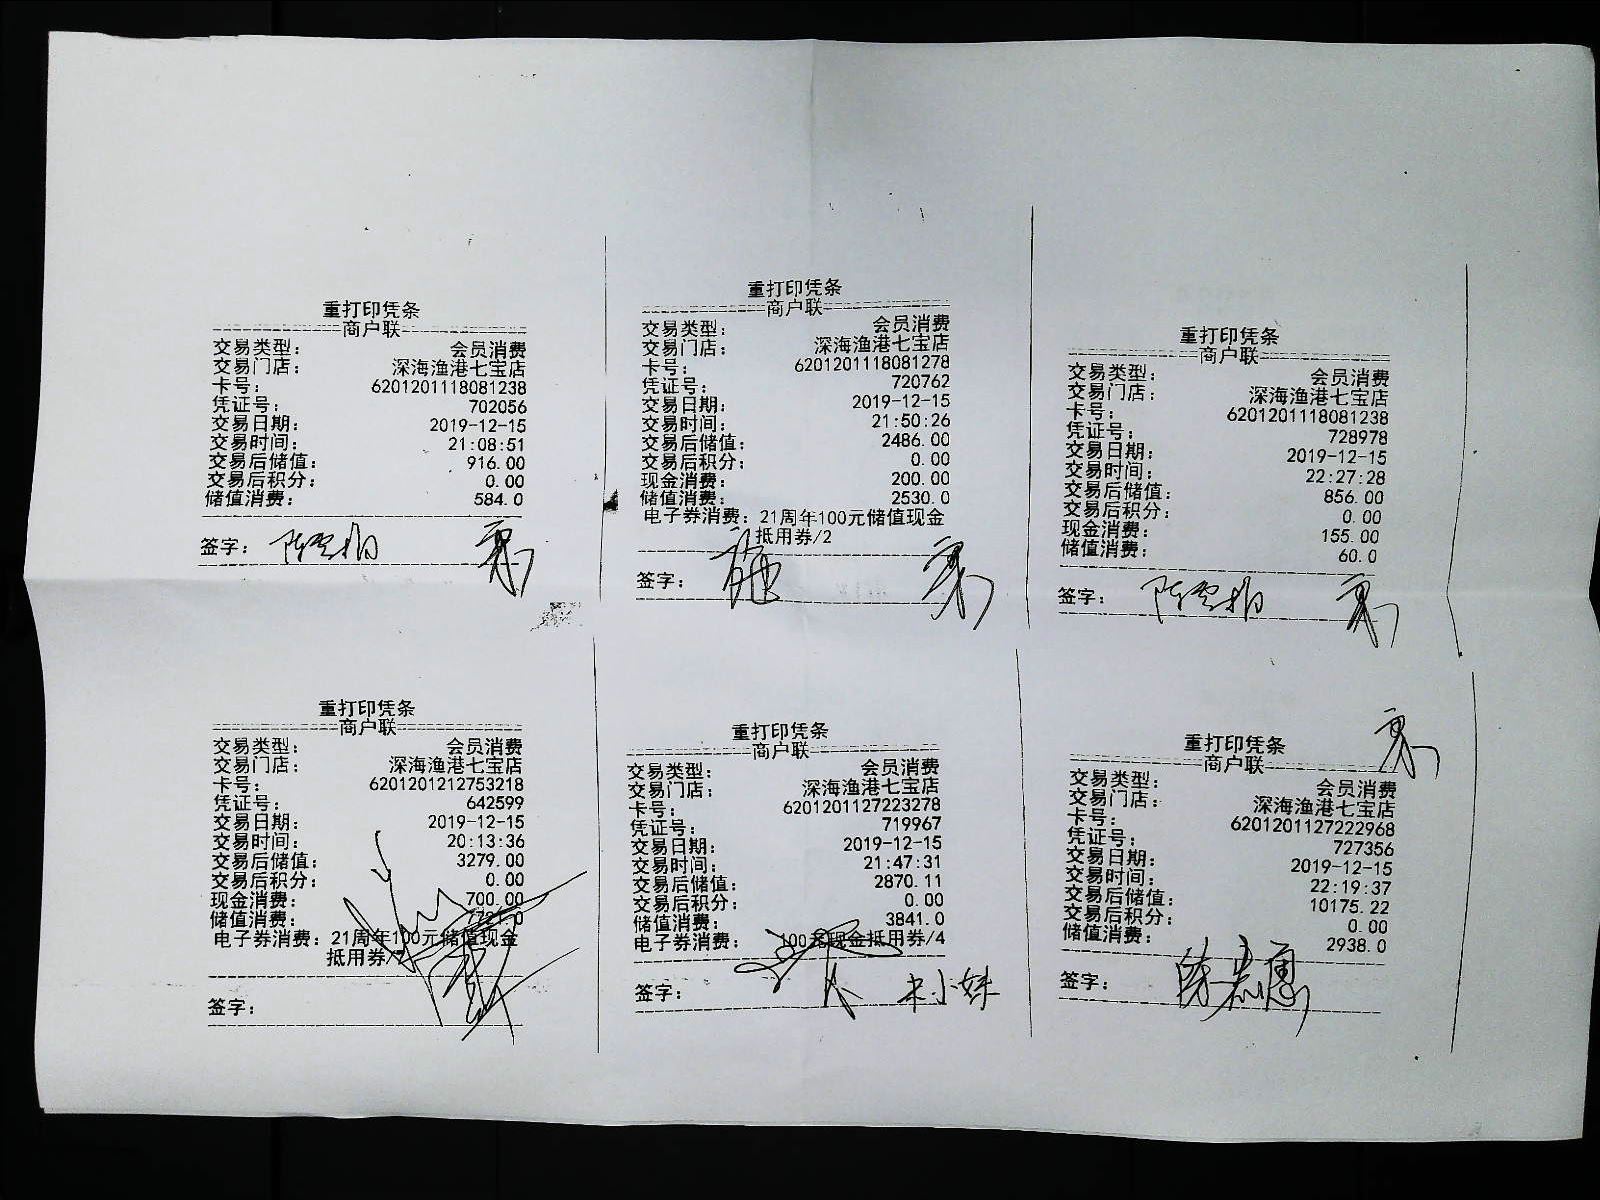 重打印凭条
商户联
交易类型： 会员消费
交易门店： 深海渔港七宝店
卡号： 6201201118081238
凭证号： 702056
交易日期： 2019-12-15
交易时间： 21:08:51
交易后储值： 916.00
交易后积分： 0.00
储值消费： 584.0
签字：
重打印凭条
商户联
交易类型： 会员消费
交易门店： 深海渔港七宝店
卡号： 6201201118081278
凭证号： 720762
交易日期： 2019-12-15
交易时间： 21:50:26
交易后储值： 2486.00
交易后积分： 0.00
现金消费： 200.00
储值消费： 2530.0
电子券消费：21周年100元储值现金
抵用券/2
签字：
重打印凭条
商户联
交易类型： 会员消费
交易门店： 深海渔港七宝店
卡号： 6201201118081238
凭证号： 728978
交易日期： 2019-12-15
交易时间： 22:27:28
交易后储值： 856.00
交易后积分： 0.00
现金消费： 155.00
储值消费： 60.0
签字：
重打印凭条
商户联
交易类型： 会员消费
交易门店： 深海渔港七宝店
卡号： 6201201212753218
凭证号： 642599
交易日期： 2019-12-15
交易时间： 20:13:36
交易后储值： 3279.00
交易后积分： 0.00
现金消费： 700.00
储值消费：
电子券消费：21周年100元储值现金
抵用券
签字：
重打印凭条
商户联
交易类型： 会员消费
交易门店： 深海渔港七宝店
卡号： 6201201127223278
凭证号： 719967
交易日期： 2019-12-15
交易时间： 21:47:31
交易后储值： 2870.11
交易后积分： 0.00
储值消费： 3841.0
电子券消费： 100元现金抵用券/4
签字： 朱小妹
重打印凭条
商户联
交易类型： 会员消费
交易门店： 深海渔港七宝店
卡号： 6201201127222968
凭证号： 727356
交易日期： 2019-12-15
交易时间： 22:19:37
交易后储值： 10175.22
交易后积分： 0.00
储值消费： 2938.0
签字：